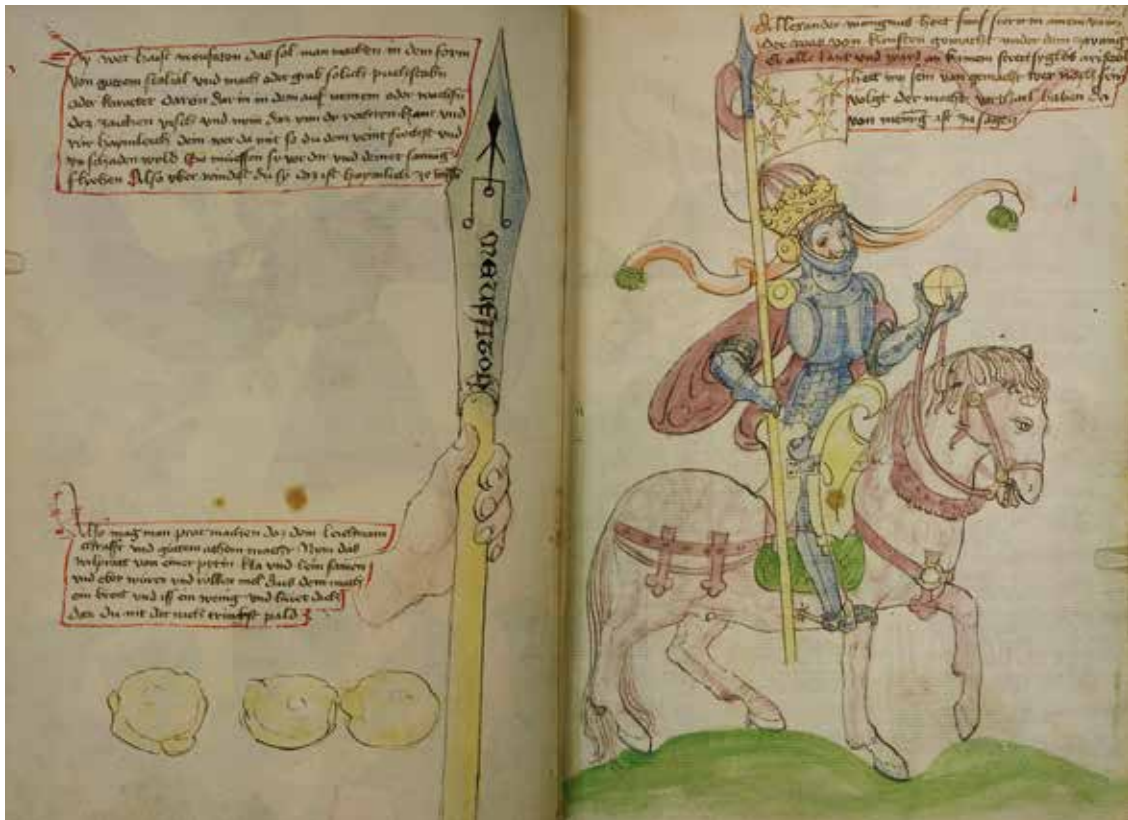 wer haist meufaton das sol man machen in dem form
von guttem stahal vnd mach oder grab solich puechstabn
oder karacter daran dar in in dem auf nemen oder
dez zaichen visch vnd nem daz von der rechten hant vnd
rür haymleich dem wer da mit so du dem veint vnd
zu schaden wold So müessen sy vor dir vnd deiner
fliehen Also vber windest du sy daz ist haymlich ze
meufaton
Also mag man prot machen daz dem leichnam
chrafft vnd guttem athem macht Nym das
wilpratt von einer kla vnd lein samen
vnd eber wurcz vnd rokken mel Aus dem mach
ein brott vnd iss ein wenig vnd huet dich
daz du nit dar nach trinkest pald
Allexander mangnus hett fünf stern in ainem van
der was von künsten gemacht vnder dem
Er alle lant vnd ward an kainem streit syglos
hett im sein van gemacht wer noch sein
volgt der mocht vorthail haben da
von wenig ist zu sagen